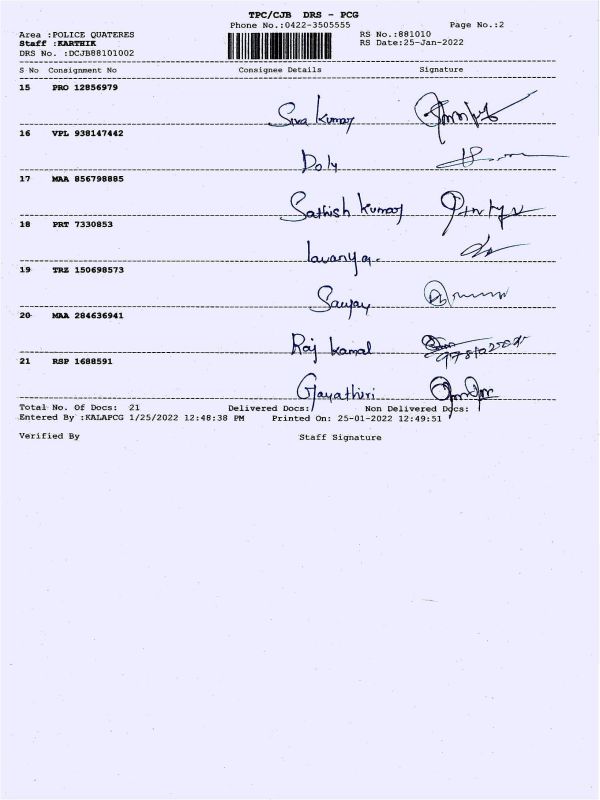 TPC/CJB DRS - PCG
Phone No.:0422-3505555 Page No.:2
Area :POLICE QUATERES RS No.:881010
Staff :KARTHIK RS Date:25-Jan-2022
DRS No. :DCJB88101002
S No Consignment No Consignee Details Signature
15 PRO 12856979
Siva kumar
16 VPL 938147442
Doly
17 MAA 856798885
Sathish kumar
18 PRT 7330853
lavanya.
19 TRZ 150698573
Sanjay
20 MAA 284636941
Raj kamal
21 RSP 1688591
Gayathiri
Total No. Of Docs: 21 Delivered Docs: Non Delivered Docs:
Entered By :KALAPCG 1/25/2022 12:48:38 PM Printed On: 25-01-2022 12:49:51
Verified By Staff Signature